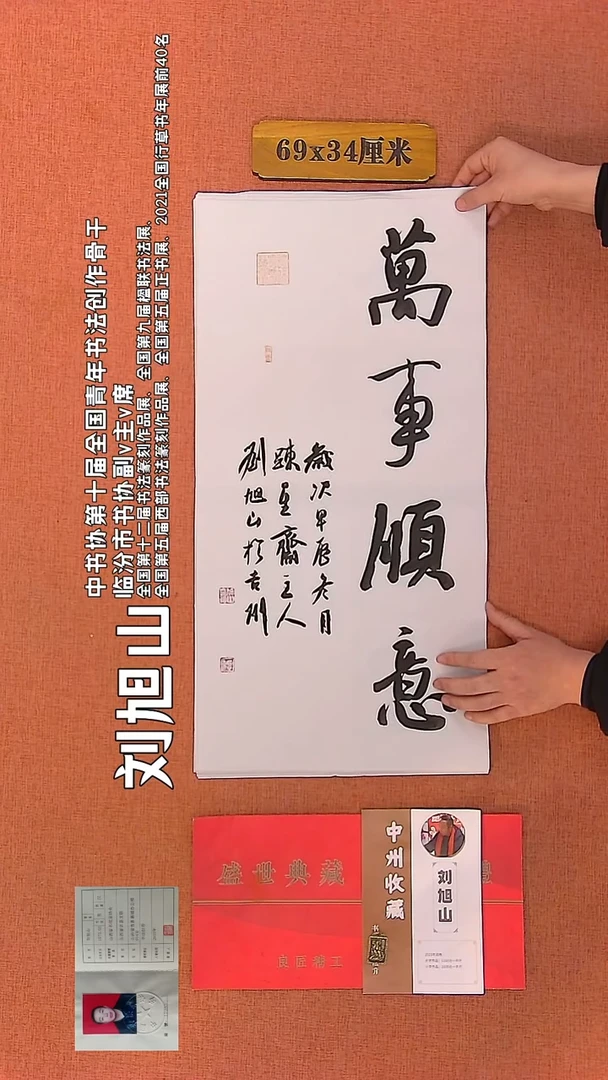 69x34厘米
萬事順意
歲次甲辰冬月
主人
劉旭山於古州
刘旭山
中书协第十届全国青年书法创作骨干
临汾市书协副v主v席
全国第十二届书法篆刻作品展、全国第九届楹联书法展、
全国第五届西部书法篆刻作品展、全国第五届正书展、2021全国行草书年展前40名
盛世典藏
良匠精工
中州收藏
刘旭山